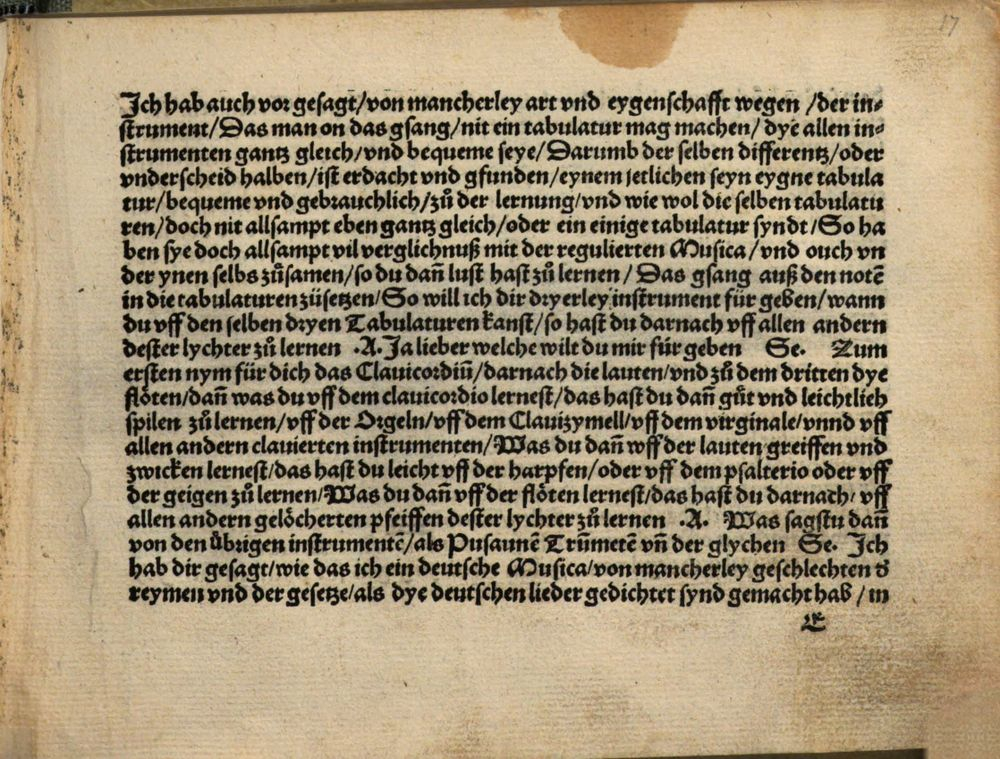 17
Ich hab auch vor gesagt/von mancherley art vnd eygenschafft wegen /der in⸗
strument/Das man on das gsang/nit ein tabulatur mag machen/ dye allen in⸗
strumenten gantz gleich/vnd bequeme seye/Darumb der selben differentz/oder
vnderscheid halben/ist erdacht vnd gfunden/eynem jetlichen seyn eygne tabula
tur/bequeme vnd gebrauchlich/zů der lernung/vnd wie wol die selben tabulatu
ren/doch nit allsampt eben gantz gleich/oder ein einige tabulatur syndt/So ha
ben sye doch allsampt vil verglichnuß mit der regulierten Musica/vnd ouch vn
der ynen selbs zůsamen/so du dañ lust hast zů lernen/ Das gsang auß den notẽ
in die tabulaturen zůsetzen/So will ich dir dryerley instrument für geben/wann
du vff den selben dryen Tabulaturen kanst/so hast du darnach vff allen andern
dester lychter zů lernen .A. Ja lieber welche wilt du mir für geben Se. Zum
ersten nym für dich das Clavicordiũ/darnach die lauten/vnd zů dem dritten dye
flöten/dañ was du vff dem clavicordio lernest/das hast du dañ gůt vnd leichtlich
spilen zů lernen/vff der Orgeln/vff dem Clavizymell/vff dem virginale/vnnd vff
allen andern clavierten instrumenten/Was du dañ wff der lauten greiffen vnd
zwicken lernest/das hast du leicht vff der harpfen/oder vff dem psalterio oder vff
der geigen zů lernen/Was du dañ vff der flöten lernest/das hast du darnach/ vff
allen andern gelöcherten pfeiffen dester lychter zů lernen .A. Was sagstu dañ
von den übrigen instrumentẽ/als Pusaunẽ Trũmetẽ vñ der glychen Se. Ich
hab dir gesagt/wie das ich ein deutsche Musica/von mancherley geschlechten d̕
reymen vnd der gesetze/als dye deutschen lieder gedichtet synd gemacht hab / in